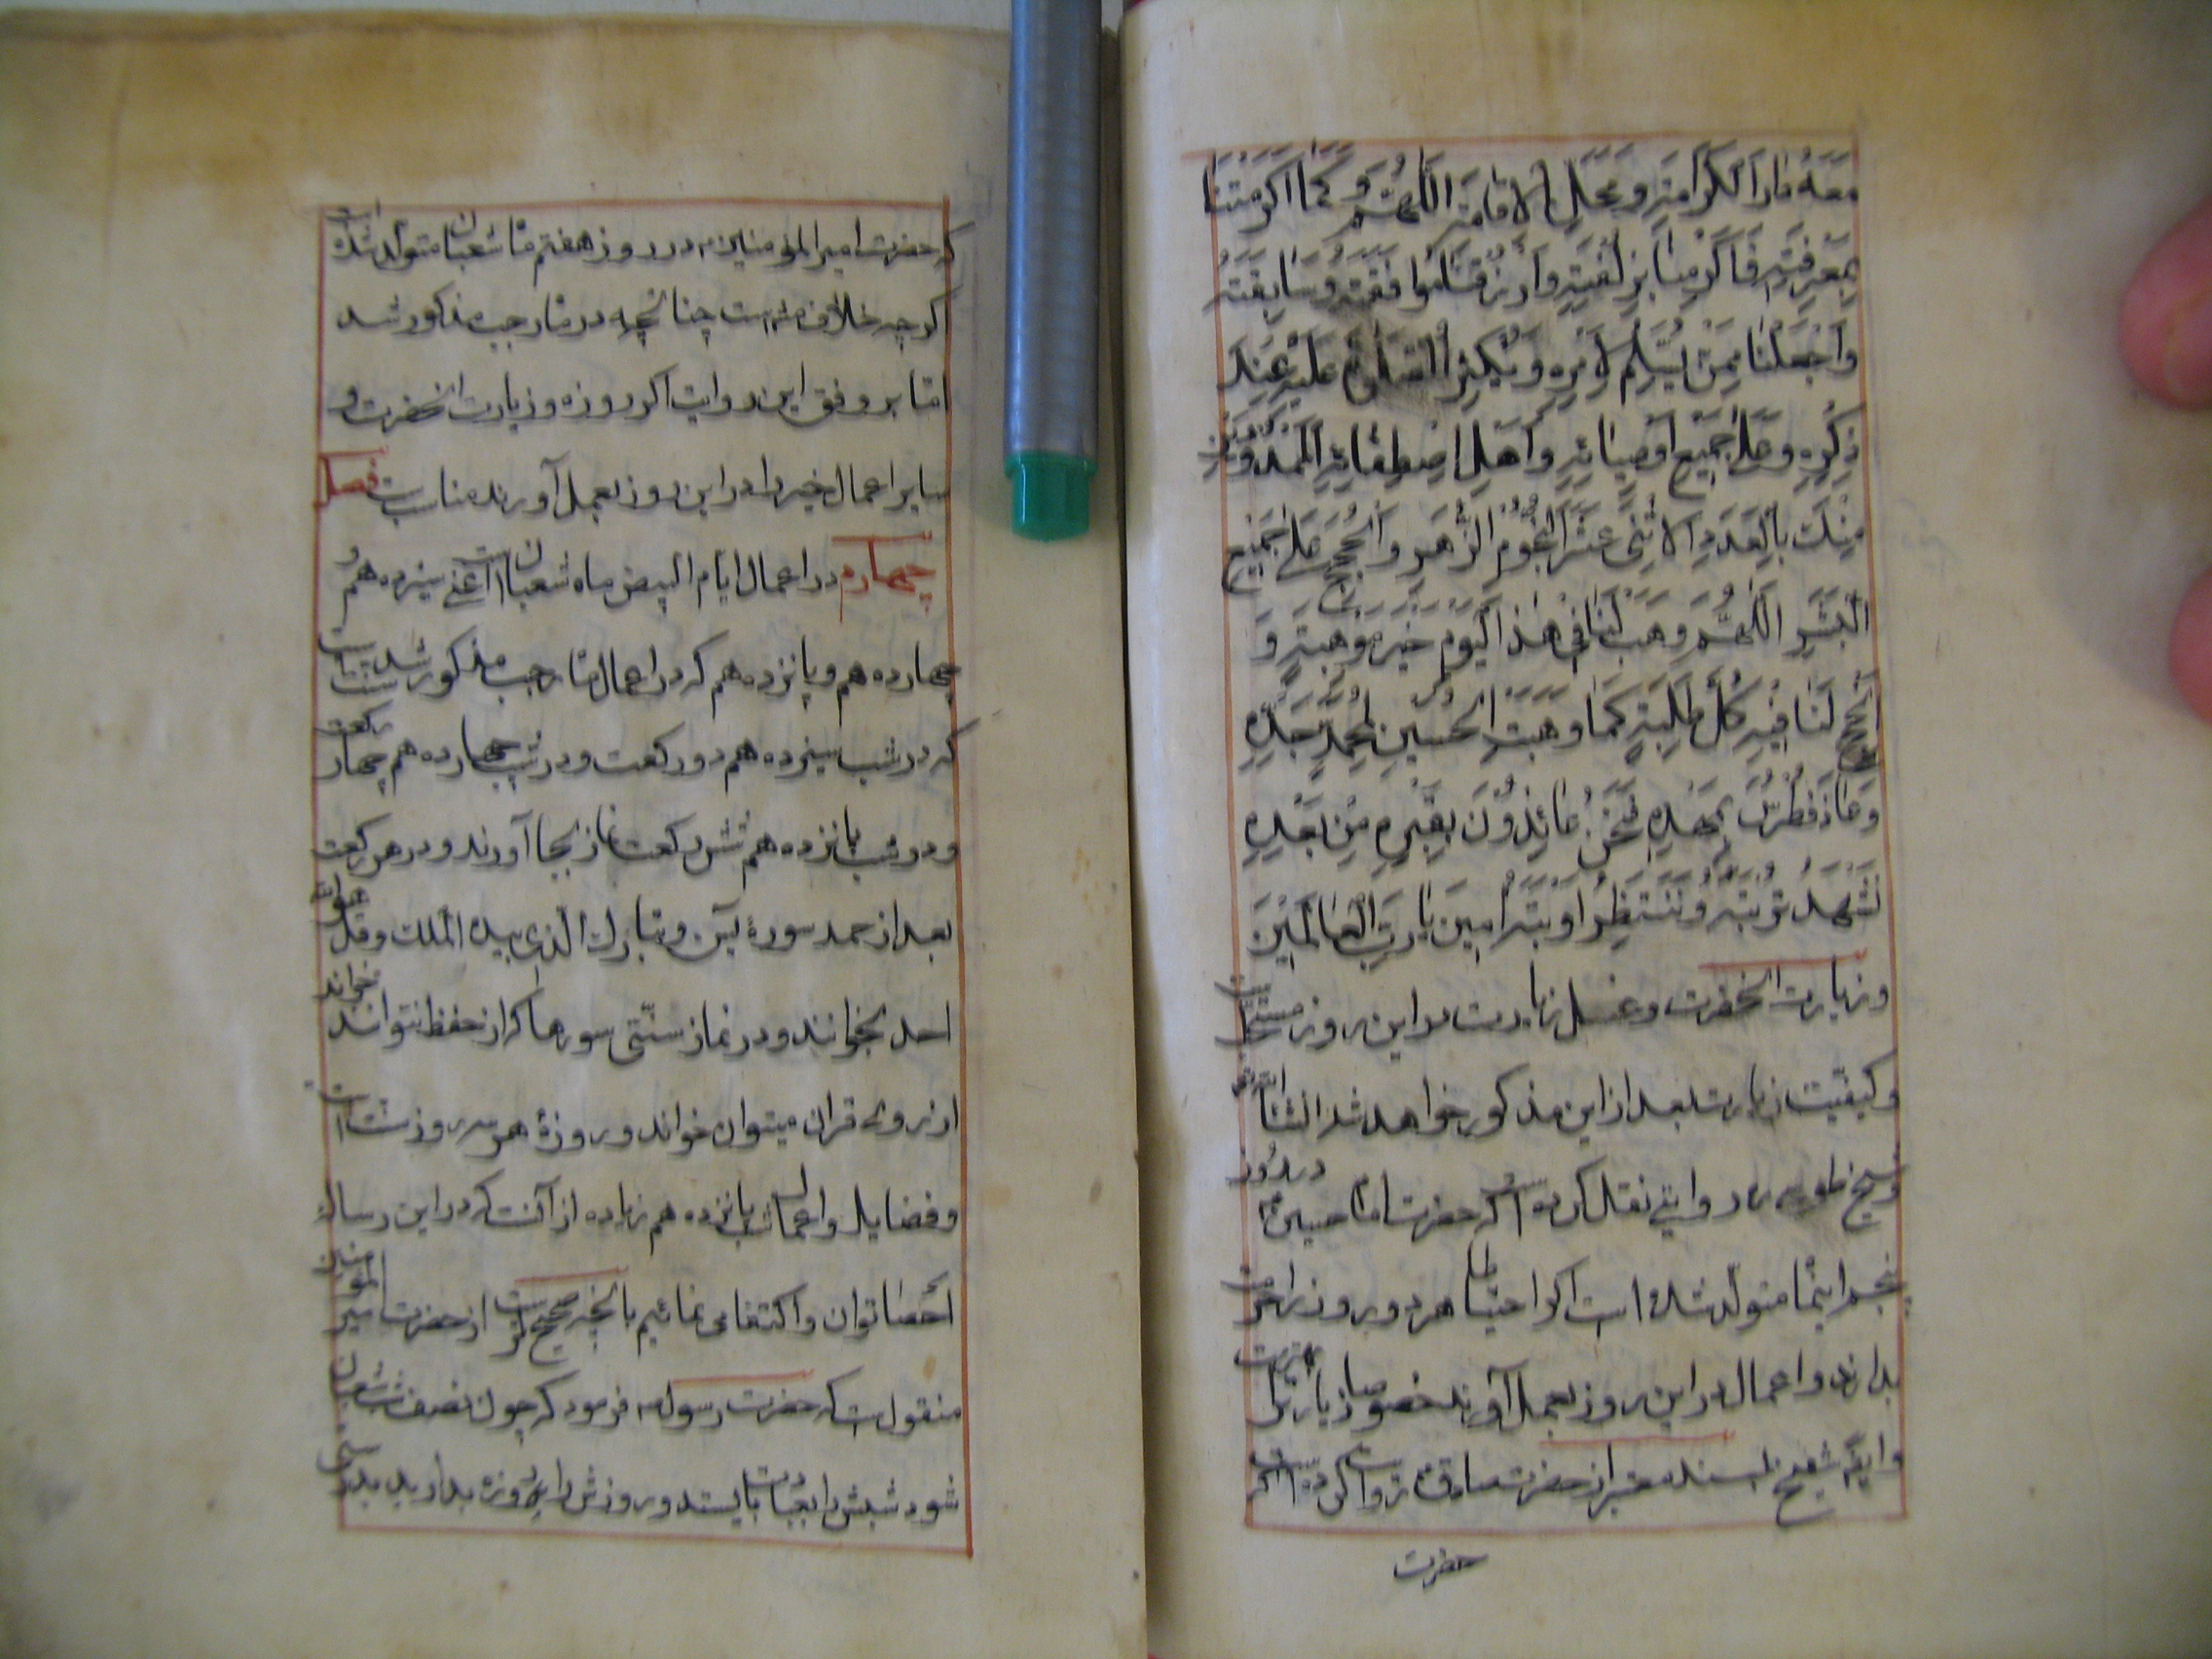 مَعَهُ دَارَ الْكَرَامَةِ وَمَحَلَّ الْاِقَامَةِ اَللّٰهُمَّ وَكَمَا اَكْرَمْتَنَا
بِمَعْرِفَتِهِ فَاَكْرِمْنَا بِزُلْفَتِهِ وَارْزُقْنَا مُرَافَقَتَهُ وَسَابِقَتَهُ
وَاجْعَلْنَا مِمَّنْ يُسَلِّمُ لِاَمْرِهِ وَيُكْثِرُ الصَّلٰوةَ عَلَيْهِ عِنْدَ
ذِكْرِهِ وَعَلٰى جَمِيعِ اَوْصِيَائِهِ وَاَهْلِ اصْطِفَائِهِ الْمَمْدُودِينَ
مِنْكَ بِالْعَدَدِ الْاِثْنَىْ عَشَرَ النُّجُومِ الزُّهَرِ وَالْحُجَجِ عَلٰى جَمِيعِ
الْبَشَرِ اَللّٰهُمَّ وَهَبْ لَنَا فِى هٰذَا الْيَوْمِ خَيْرَ مَوْهِبَةٍ وَ
اَنْجِحْ لَنَا فِيهِ كُلَّ طَلِبَةٍ كَمَا وَهَبْتَ الْحُسَيْنَ لِمُحَمَّدٍ جَدِّهِ
وَعَاذَ فُطْرُسُ بِمَهْدِهِ فَنَحْنُ عَائِذُونَ بِقَبْرِهِ مِنْ بَعْدِهِ
نَشْهَدُ تُرْبَتَهُ وَنَنْتَظِرُ اَوْبَتَهُ اٰمِينَ يَا رَبَّ الْعَالَمِينَ
و زیارت آنحضرت و غسل زیارت در این روز مستحبّ است
و کیفیّت زیارت بعد از این مذکور خواهد شد انشاء الله تعالی
و شیخ طوسی ره روایتی نقل کرده است که حضرت امام حسین ع در روز
پنجم این ماه متولّد شده است اکر احتیاطا هر دو روز را حرمت
بدارند و اعمال در این روز بعمل آورند خصوصا زیارت بهتر است
و ایضا شیخ بسند معتبر از حضرت صادق ع روایت کرده است که
حضرت
که حضرت امیر المؤمنین ع در روز هفتم ماه شعبان متولّد شده است
کرچه خلاف مشهور است چنانچه در ماه رجب مذکور شد
امّا بر وفق این روایت اکر روزه و زیارت آنحضرت و
سایر اعمال خیر را در این روز بعمل آورند مناسب است فصل
چهارم در اعمال ایام البیض ماه شعبان است اعنی سیزدهم و
چهارده هم و پانزده هم که در اعمال ماه رجب مذکور شد سنّت است
که در شب سیزده هم دو رکعت و در شب چهارده هم چهار رکعت
و در شب پانزده هم شش رکعت نماز بجا آورند و در هر رکعت
بعد از حمد سورهٔ یس و تبارك الّذی بیده الملك و قل هو الله
احد بخوانند و در نماز سنّتی سورها که از حفظ نتوانند خواند
از روی قران میتوان خواند و روزهٔ هر سه روز سنّت است
و فضایل و اعمال شب پانزده هم زیاده از آنست که در این رساله
احصا توان و اکتفا می نمائیم بانچه صحیح تر است از حضرت امیر المؤمنین
منقولست که حضرت رسول ص فرمود که چون نصف شب شعبان
شود شبش را بعبادت بایستید و روزش را بروزه بدارید بدرستی